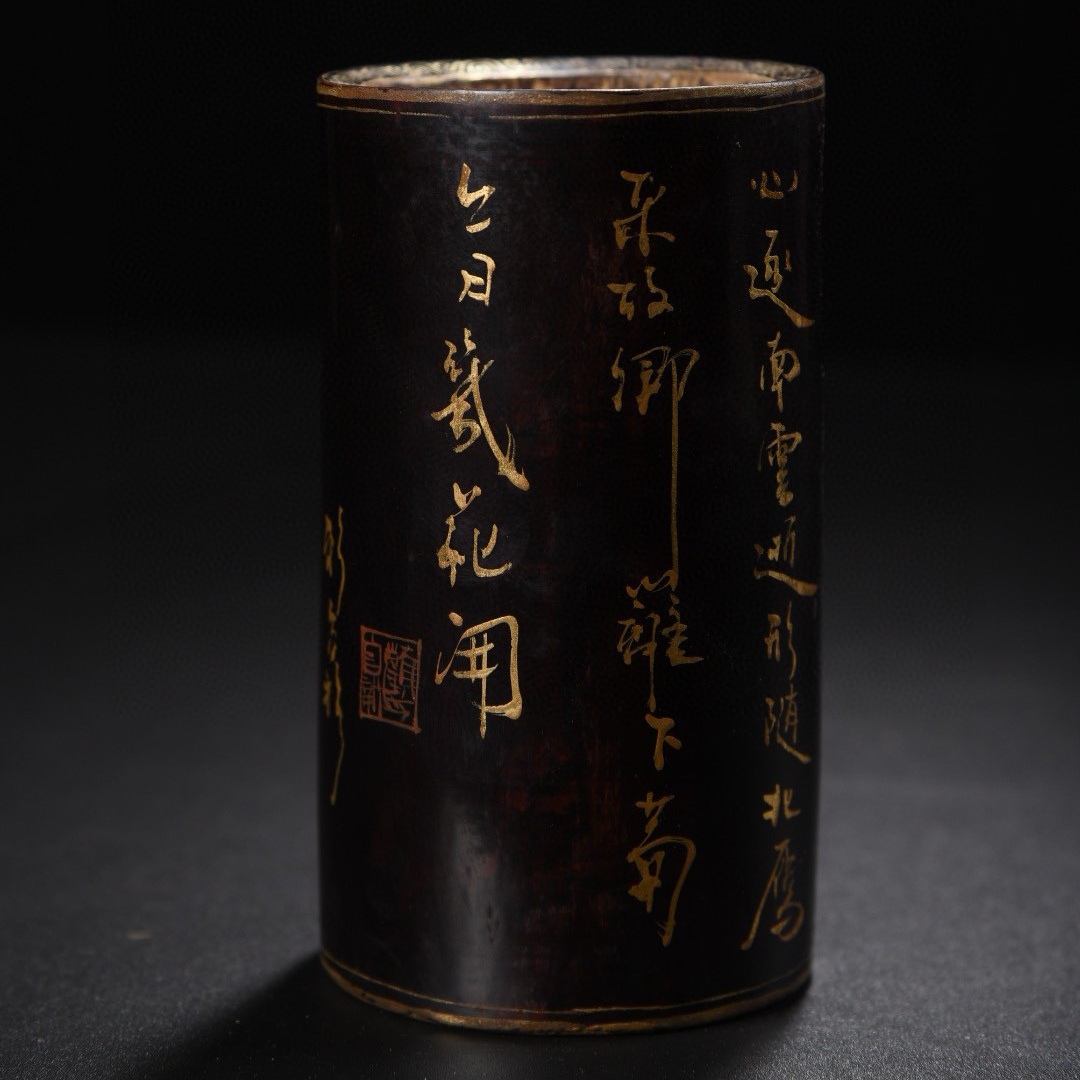 心逐南雲逝形随北鴈
来故鄉籬下菊
今日幾花開